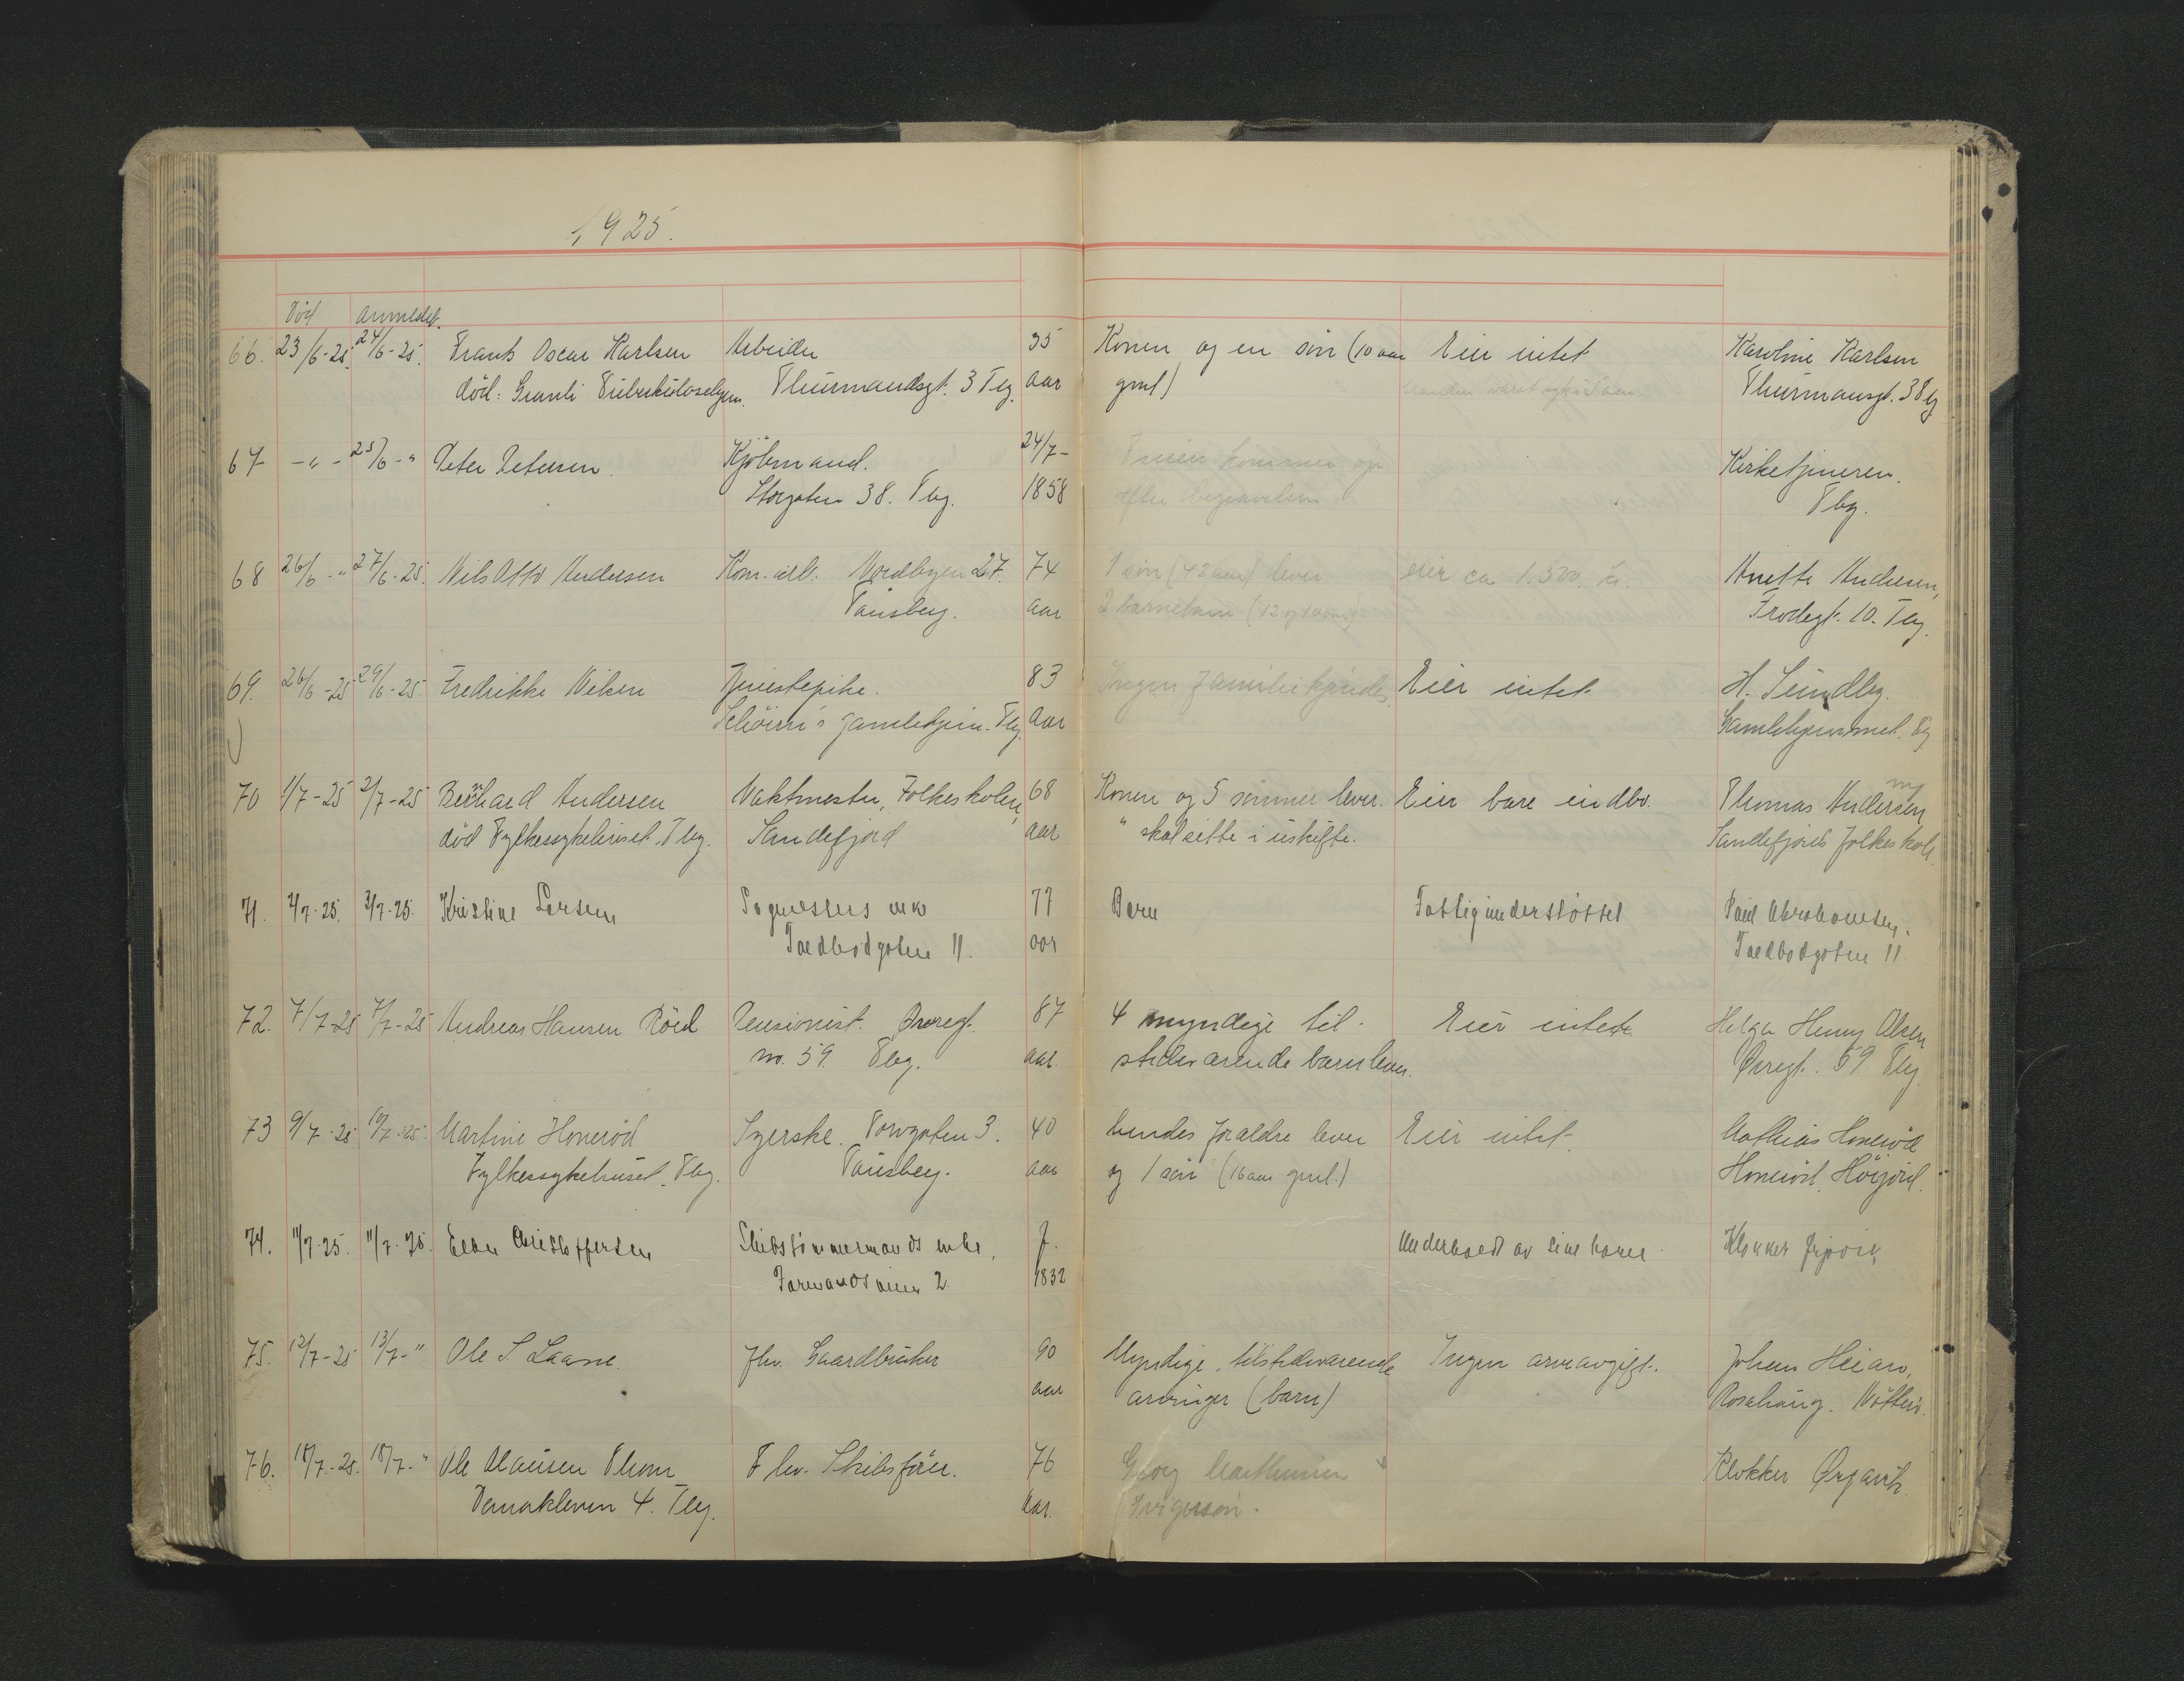 1925.
Död Anmeldt.
66. 23/6-25. 24/6-25. Frants Oscar Karlsen Arbeider 35 Konen og en sön (10 aar Eier intet Karoline Karlsen
död: Granli Tuberkulosehjem. Thurmandsgt. 3 Tbg. aar gml) Thurmansgt. 3 Tbg
67 -"- 25/6-" Peter Petersen. Kjöbmand. 24/7- Fruen kommer op Kirketjeneren.
Storgaten 38. Tbg. 1858 efter begravelsen Tbg.
68 26/6-" 27/6-25. Nils Otto Andersen Kom. arb. Nordbyen 27. 74 1 sön (42 aar) lever eier ca 1.500 kr. Anette Andersen,
Tönsberg. aar 2 barnebarn (12 og 10 aar) Frodegt. 10. Tbg.
69. 26/6-25 29/6-25. Fredrikke Nilsen Tjenestepike. 83 Ingen familie kjendes Eier intet H. Lundby.
gamlehjem. Tbg. aar Gamlehjemmet. Tbg
70 1/7-25 2/7-25 Bernhard Andersen Vaktmester, Folkeskolen, 68 Konen og 5 sönner lever. Eier bare indbo. Thomas Andersen
död Fylkessykehuset. Tbg. Sandefjord aar " skal sitte i uskifte. Sandefjords folkeskole.
71. 2/7-25. 3/7-25. Kristine Larsen enke 77 Barn Fattigunderstöttet Paul Abrahamsen.
Toldbodgaten 11. aar Toldbodgaten 11.
72. 7/7-25 7/7-25 Andreas Hansen Röed Pensionist. Övregt. 87 4 myndige til- Eier intet Helga Henny Olsen
no. 59 Tbg. aar. stedeværende barn lever. Övregt. 59 Tbg
73 9/7-25 10/7-25. Martine Honeröd Syerske. Torvgaten 3. 40 hendes foraldre lever Eier intet. Mathias Honeröd
Fylkessykehuset. Tbg. Tönsberg. aar og 1 sön (16 aar gml.) Honeröd, Höijord.
74. 11/7-25. 11/7-25. Ellen Christoffersen Skibstömmermands enke, f. Underholdt av sine barn. Klokker
2. 1832
75. 12/7-25 13/7-" Ole S. Laane. fhv. Gaardbruker 90 Myndige, tilstedeværende Ingen arveavgift. Johan Heian,
aar arvinger (barn) Rosahaug. Nötterö.
76. 18/7-25. 18/7-" Ole Hansen Thom Fhv. Skibsförer. 76 Georg Klokker
4. Tbg. aar. Svigersön.